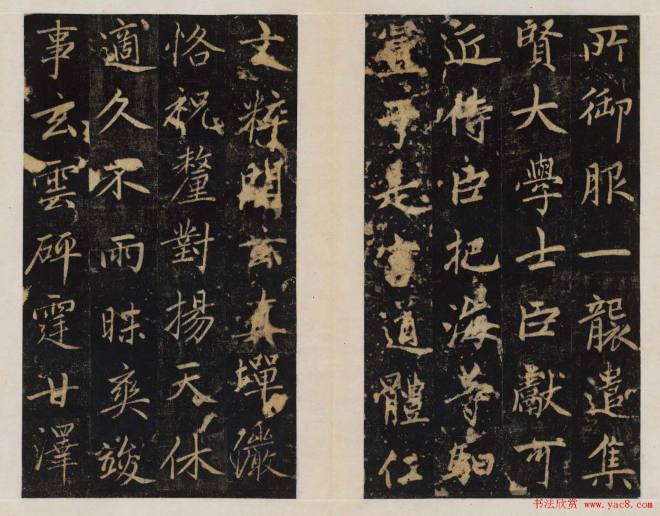 所御服一襲遣集
賢大學士臣獻可
近侍臣把海等馳
是道體仁
士粹開玄真墠瀲
恪祝釐對揚天休
適久不雨昧爽竣
事玄雲碑霆甘澤
书法欣赏 www.yac8.com